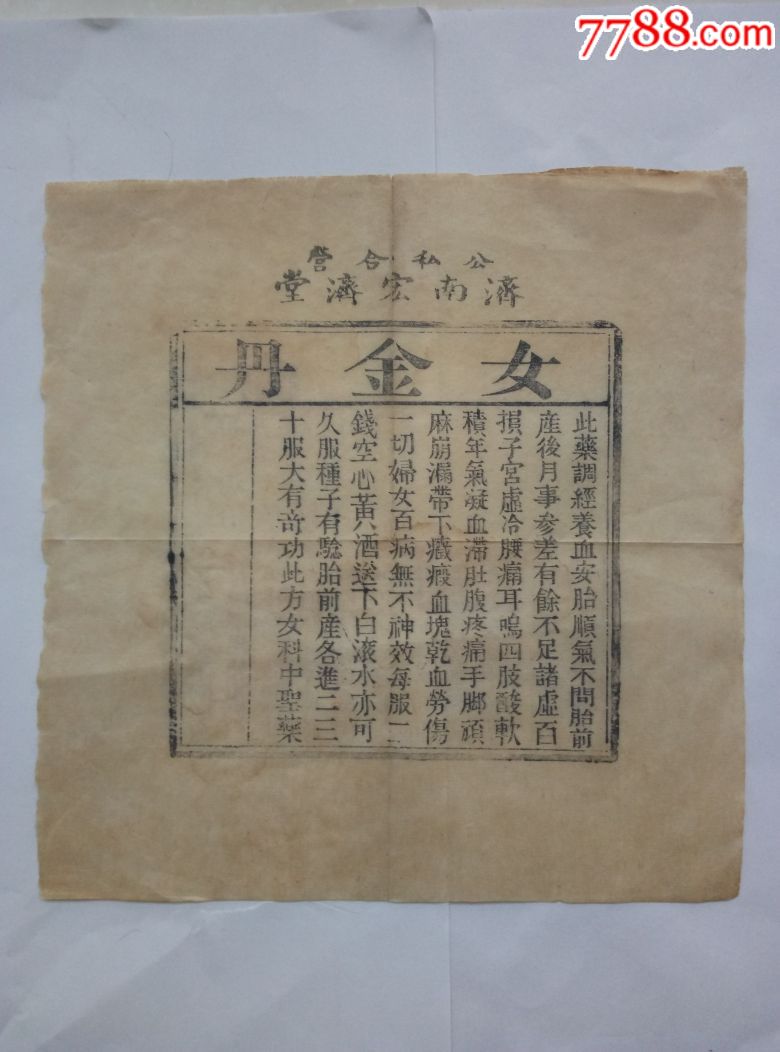 7788.com
公私合營
濟南宏濟堂
女金丹
此藥調經養血安胎順氣不問胎前
產後月事參差有餘不足諸虛百
損子宮虛冷腰痛耳鳴四肢酸軟
積年氣凝血滯肚腹疼痛手脚頑
麻崩漏帶下癥瘕血塊乾血勞傷
一切婦女百病無不神效每服二
錢空心黃酒送下白滾水亦可
久服種子有驗胎前產各進二三
十服大有奇功此方女科中聖藥